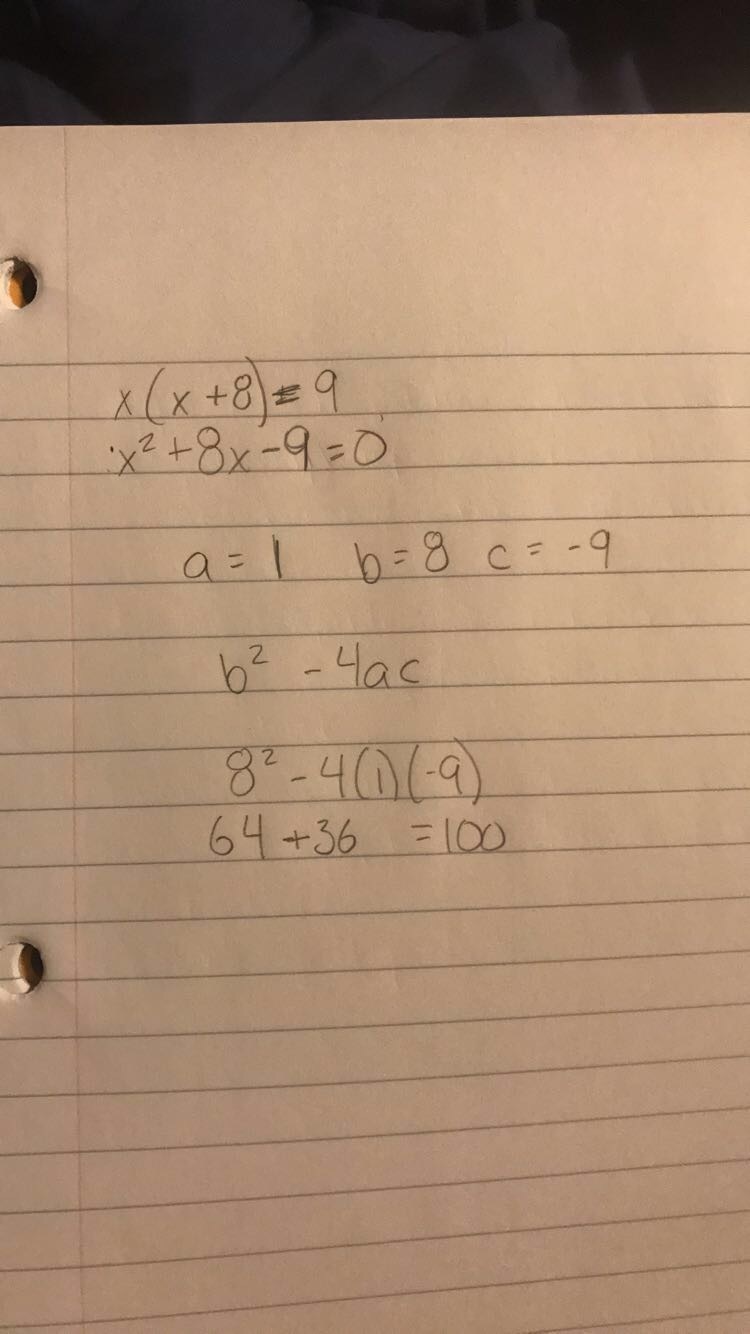 x(x+8)=9
x²+8x-9=0
a=1 b=8 c=-9
b²-4ac
8²-4(1)(-9)
64+36 =100